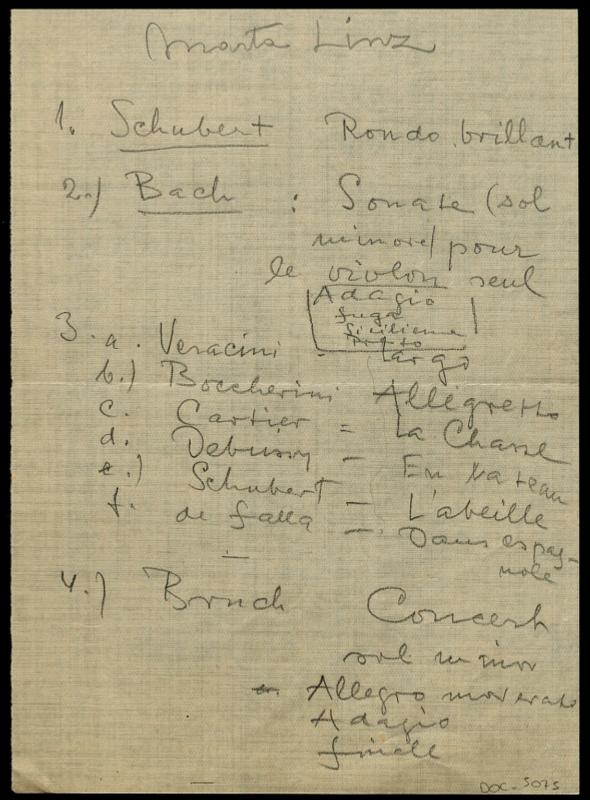 Marta Linz
1. Schubert Rondo brillant
2.) Bach : Sonate (sol
minore) pour
le violon seul
Adagio
fuga
Sicilienne
Presto
3. a. Veracini - Largo
b.) Boccherini Allegretto
c. Cartier = La Chasse
d. Debussy - En bateau
e.) Schubert - L'abeille
f. de falla - Dans espag-
nole
4.) Bruch Concert
sol minor
Allegro moderato
Adagio
finale
DOC-5075